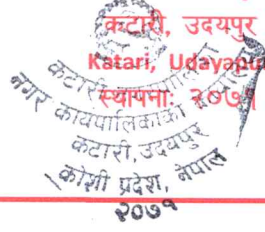 कटारी, उदयपुर
Katari, Udayapur
स्थापना: २०७१
कटारी नगरपालिका
नगर कार्यपालिकाको कार्यालय
कटारी, उदयपुर
कोशी प्रदेश, नेपाल
२०७१